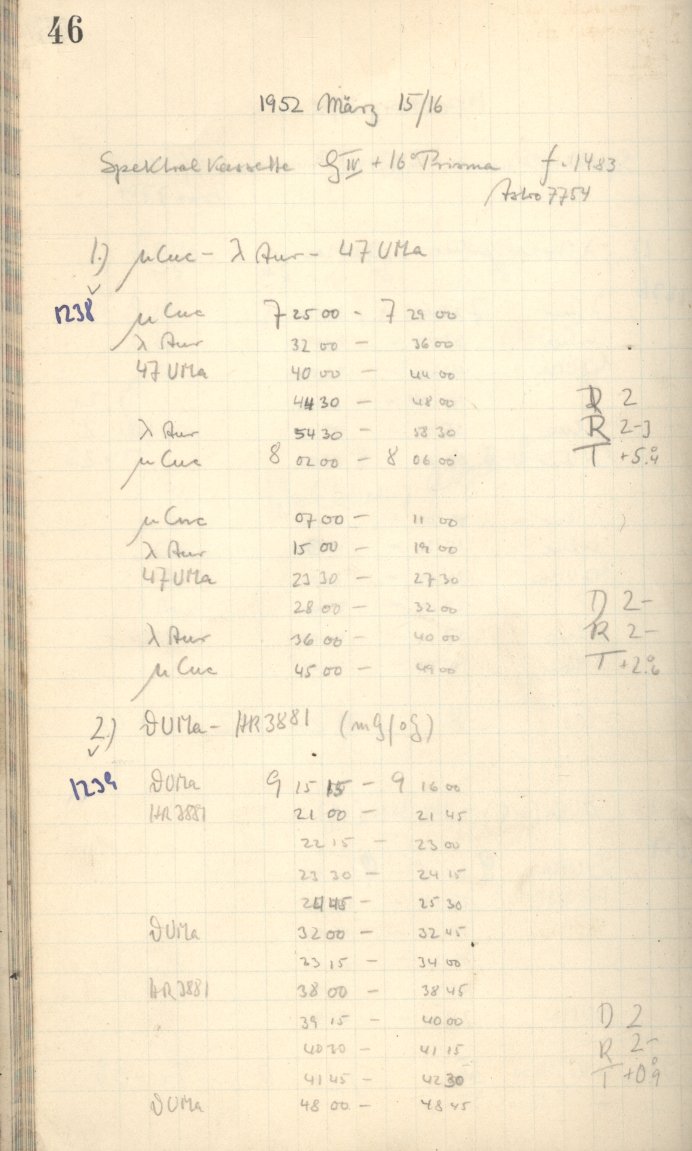 46
1952 März 15/16
Spektralkassette GIV + 16° Prisma f. 1483
Astro 7754
1.) μ Cnc - λ Aur - 47 UMa
1238 μ Cnc 7 25 00 - 7 29 00
λ Aur 32 00 - 36 00
47 UMa 40 00 - 44 00
44 30 - 48 00 D 2
λ Aur 54 30 - 58 30 R 2-3
μ Cnc 8 02 00 - 8 06 00 T +5.°4
μ Cnc 07 00 - 11 00
λ Aur 15 00 - 19 00
47 UMa 23 30 - 27 30
28 00 - 32 00 D 2-
λ Aur 36 00 - 40 00 R 2-
μ Cnc 45 00 - 49 00 T +2.°6
2.) ϑ UMa - HR 3881 (mG/oG)
1239 ϑ UMa 9 15 15 - 9 16 00
HR 3881 21 00 - 21 45
22 15 - 23 00
23 30 - 24 15
24 45 - 25 30
ϑ UMa 32 00 - 32 45
33 15 - 34 00
HR 3881 38 00 - 38 45
" 39 15 - 40 00 D 2
40 30 - 41 15 R 2-
41 45 - 42 30 T +0.°9
ϑ UMa 48 00 - 48 45